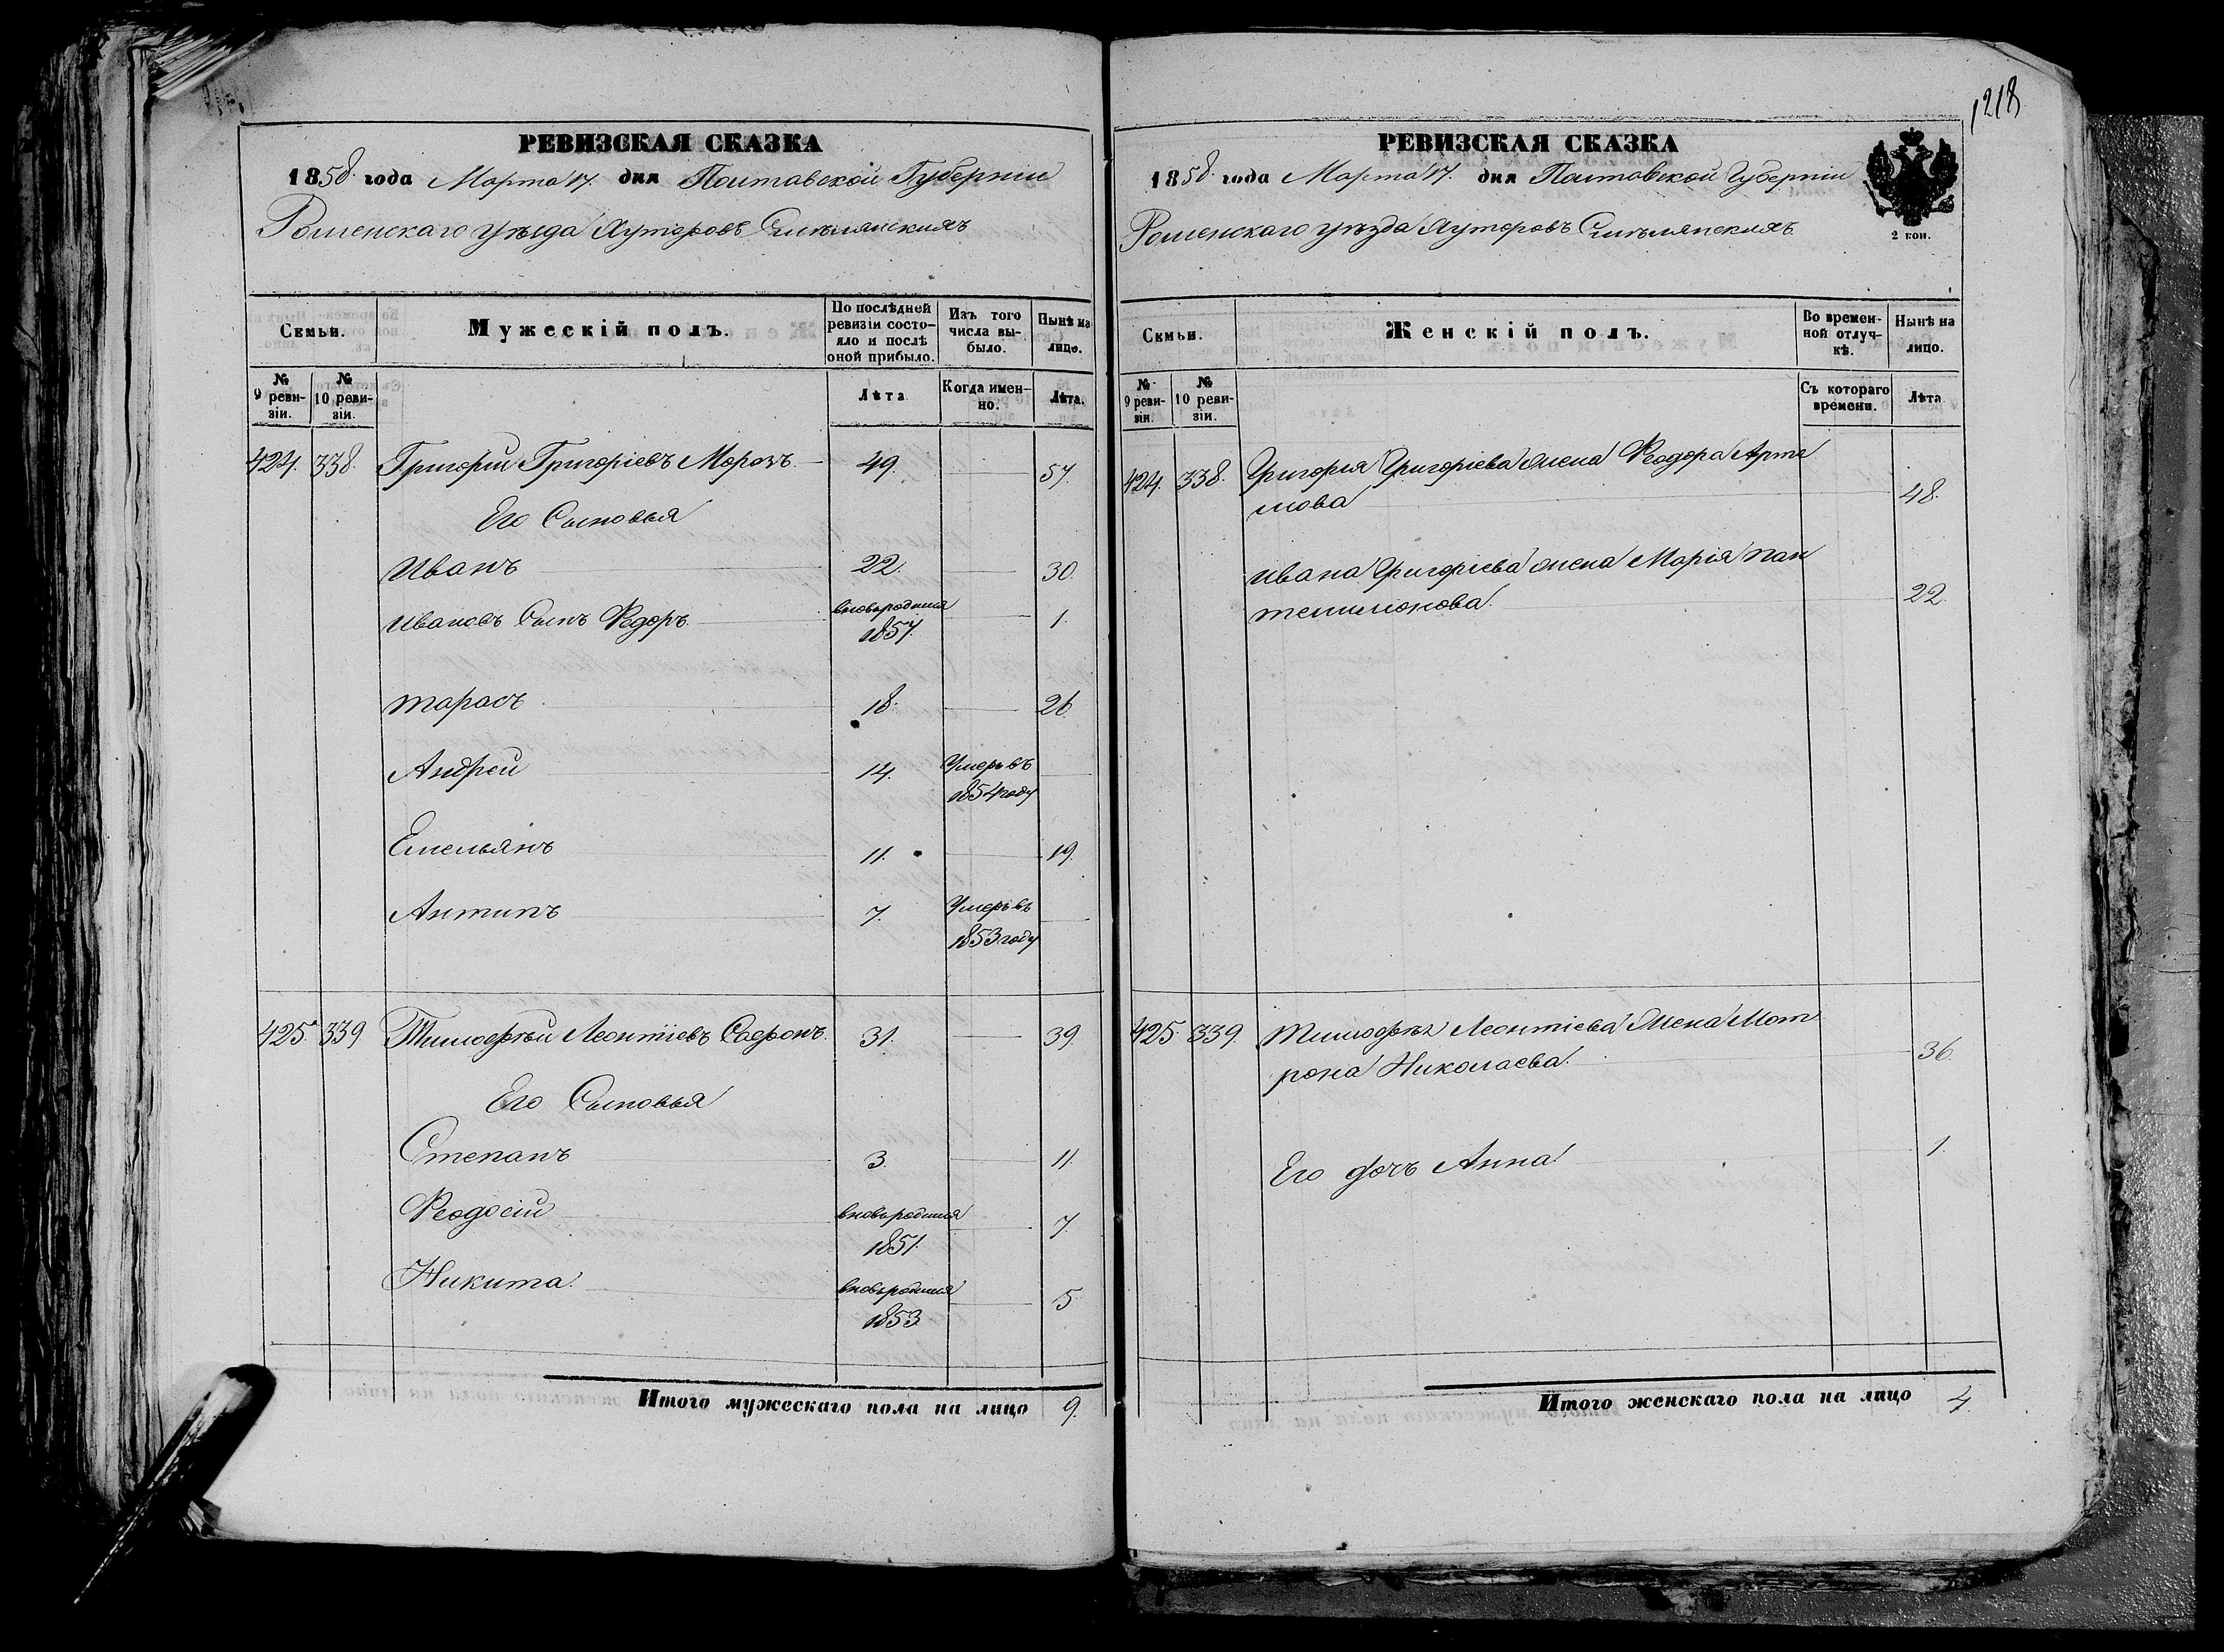 1218
РЕВИЗСКАЯ СКАЗКА
1858 года Марта 17 дня Полтавской Губерніи
Роменскаго уѣзда Хуторовъ Смѣлянскихъ
Семьи.
Мужескій полъ.
По послѣдней ревизіи состояло и послѣ оной прибыло.
Изъ того числа выбыло.
Нынѣ на лицо.
№ 9 ревизіи.
№ 10 ревизіи.
Лѣта
Когда именно.
Лѣта.
424. 338. Григорій Григоріевъ Морозъ 49. 57.
Его Сыновья
Иванъ 22. 30.
Ивановъ Сынъ Федоръ вновьродился 1857. 1.
Тарасъ 18. 26
Андрей 14. Умеръ въ 1854 году
Емельянъ 11. 19.
Антипъ 7. Умеръ въ 1853 году
425. 339. Тимофѣй Леонтіевъ Сафронъ. 31. 39.
Его Сыновья
Степанъ 3. 11.
Феодосій вновьродился 1851. 7.
Никита вновьродился 1853. 5.
Итого мужескаго пола на лицо 9.
РЕВИЗСКАЯ СКАЗКА
1858 года Марта 17 дня Полтавской Губерніи
Роменскаго уѣзда Хуторовъ Смѣлянскихъ
2 коп.
Семьи.
Женскій полъ.
Во временной отлучкѣ.
Нынѣ на лицо.
№ 9 ревизіи.
№ 10 ревизіи.
Съ котораго времени.
Лѣта
424. 338. Григорія Григоріева жена Феодора Арте
мова 48.
Ивана Григоріева жена Марія Пан
телимонова. 22.
425. 339. Тимофѣя Леонтіева Жена Мот
рона Николаева. 36.
Его дочь Анна 1.
Итого женскаго пола на лицо 4